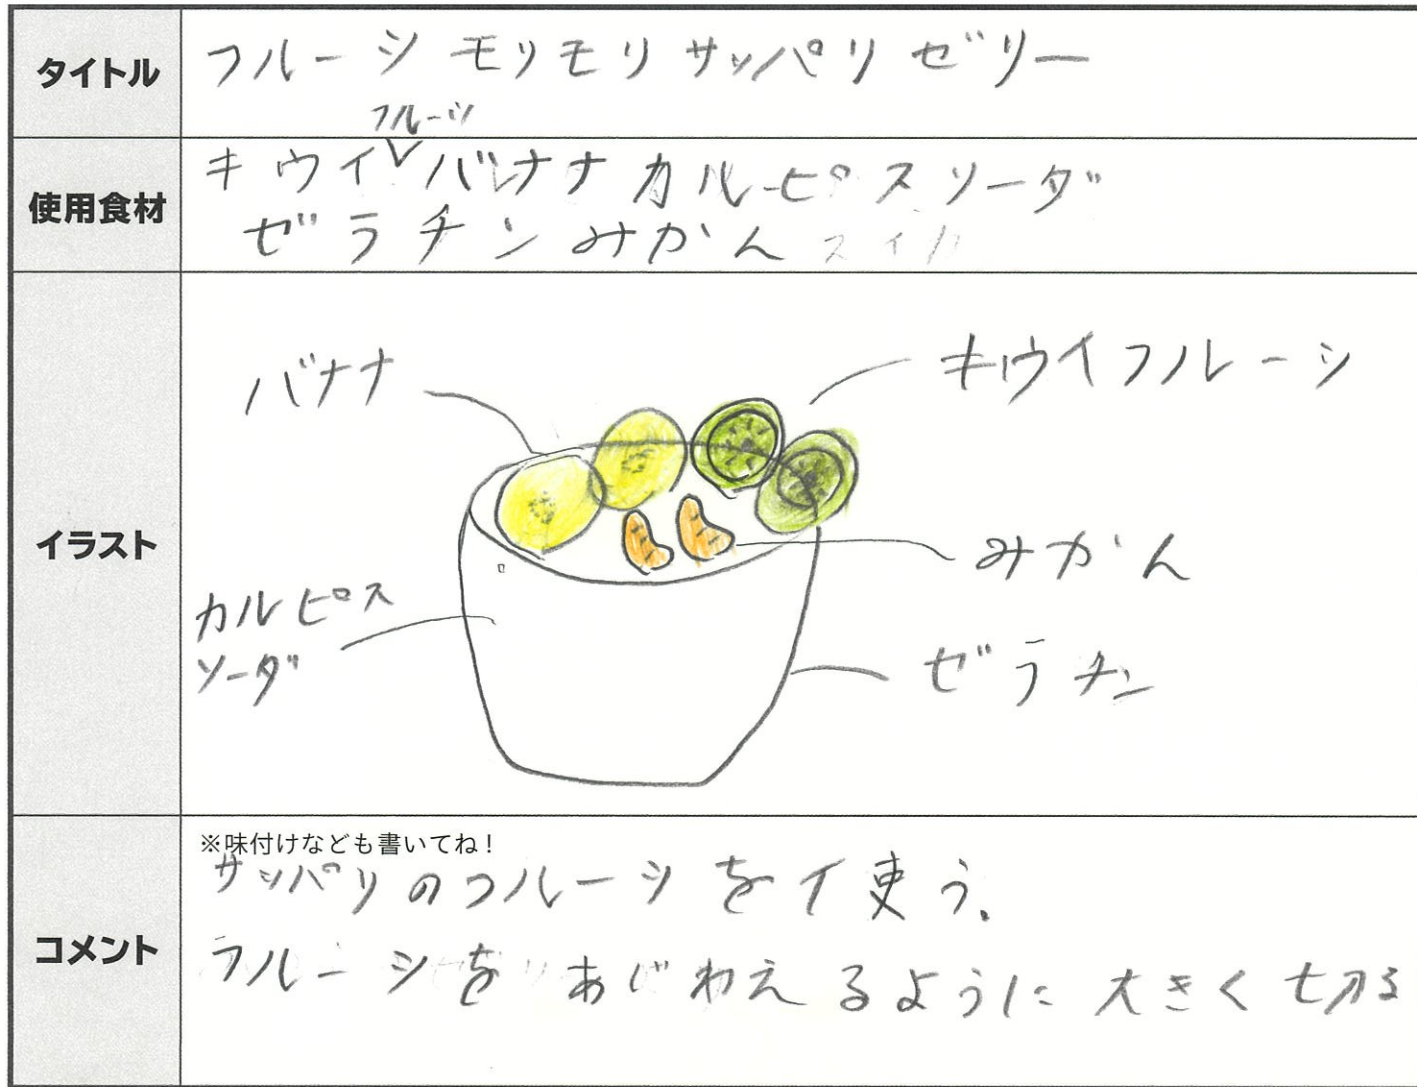 タイトル
フルーシ モリモリ サッパリ ゼリー
フルーツ
使用食材
キウイ バナナ カルピスソーダ
ゼラチン みかん スイカ
イラスト
バナナ
キウイフルーシ
みかん
カルピス
ソーダ
ゼラチン
コメント
※味付けなども書いてね!
サッパリのフルーシを使う.
フルーシを あじわえるように 大きく切る